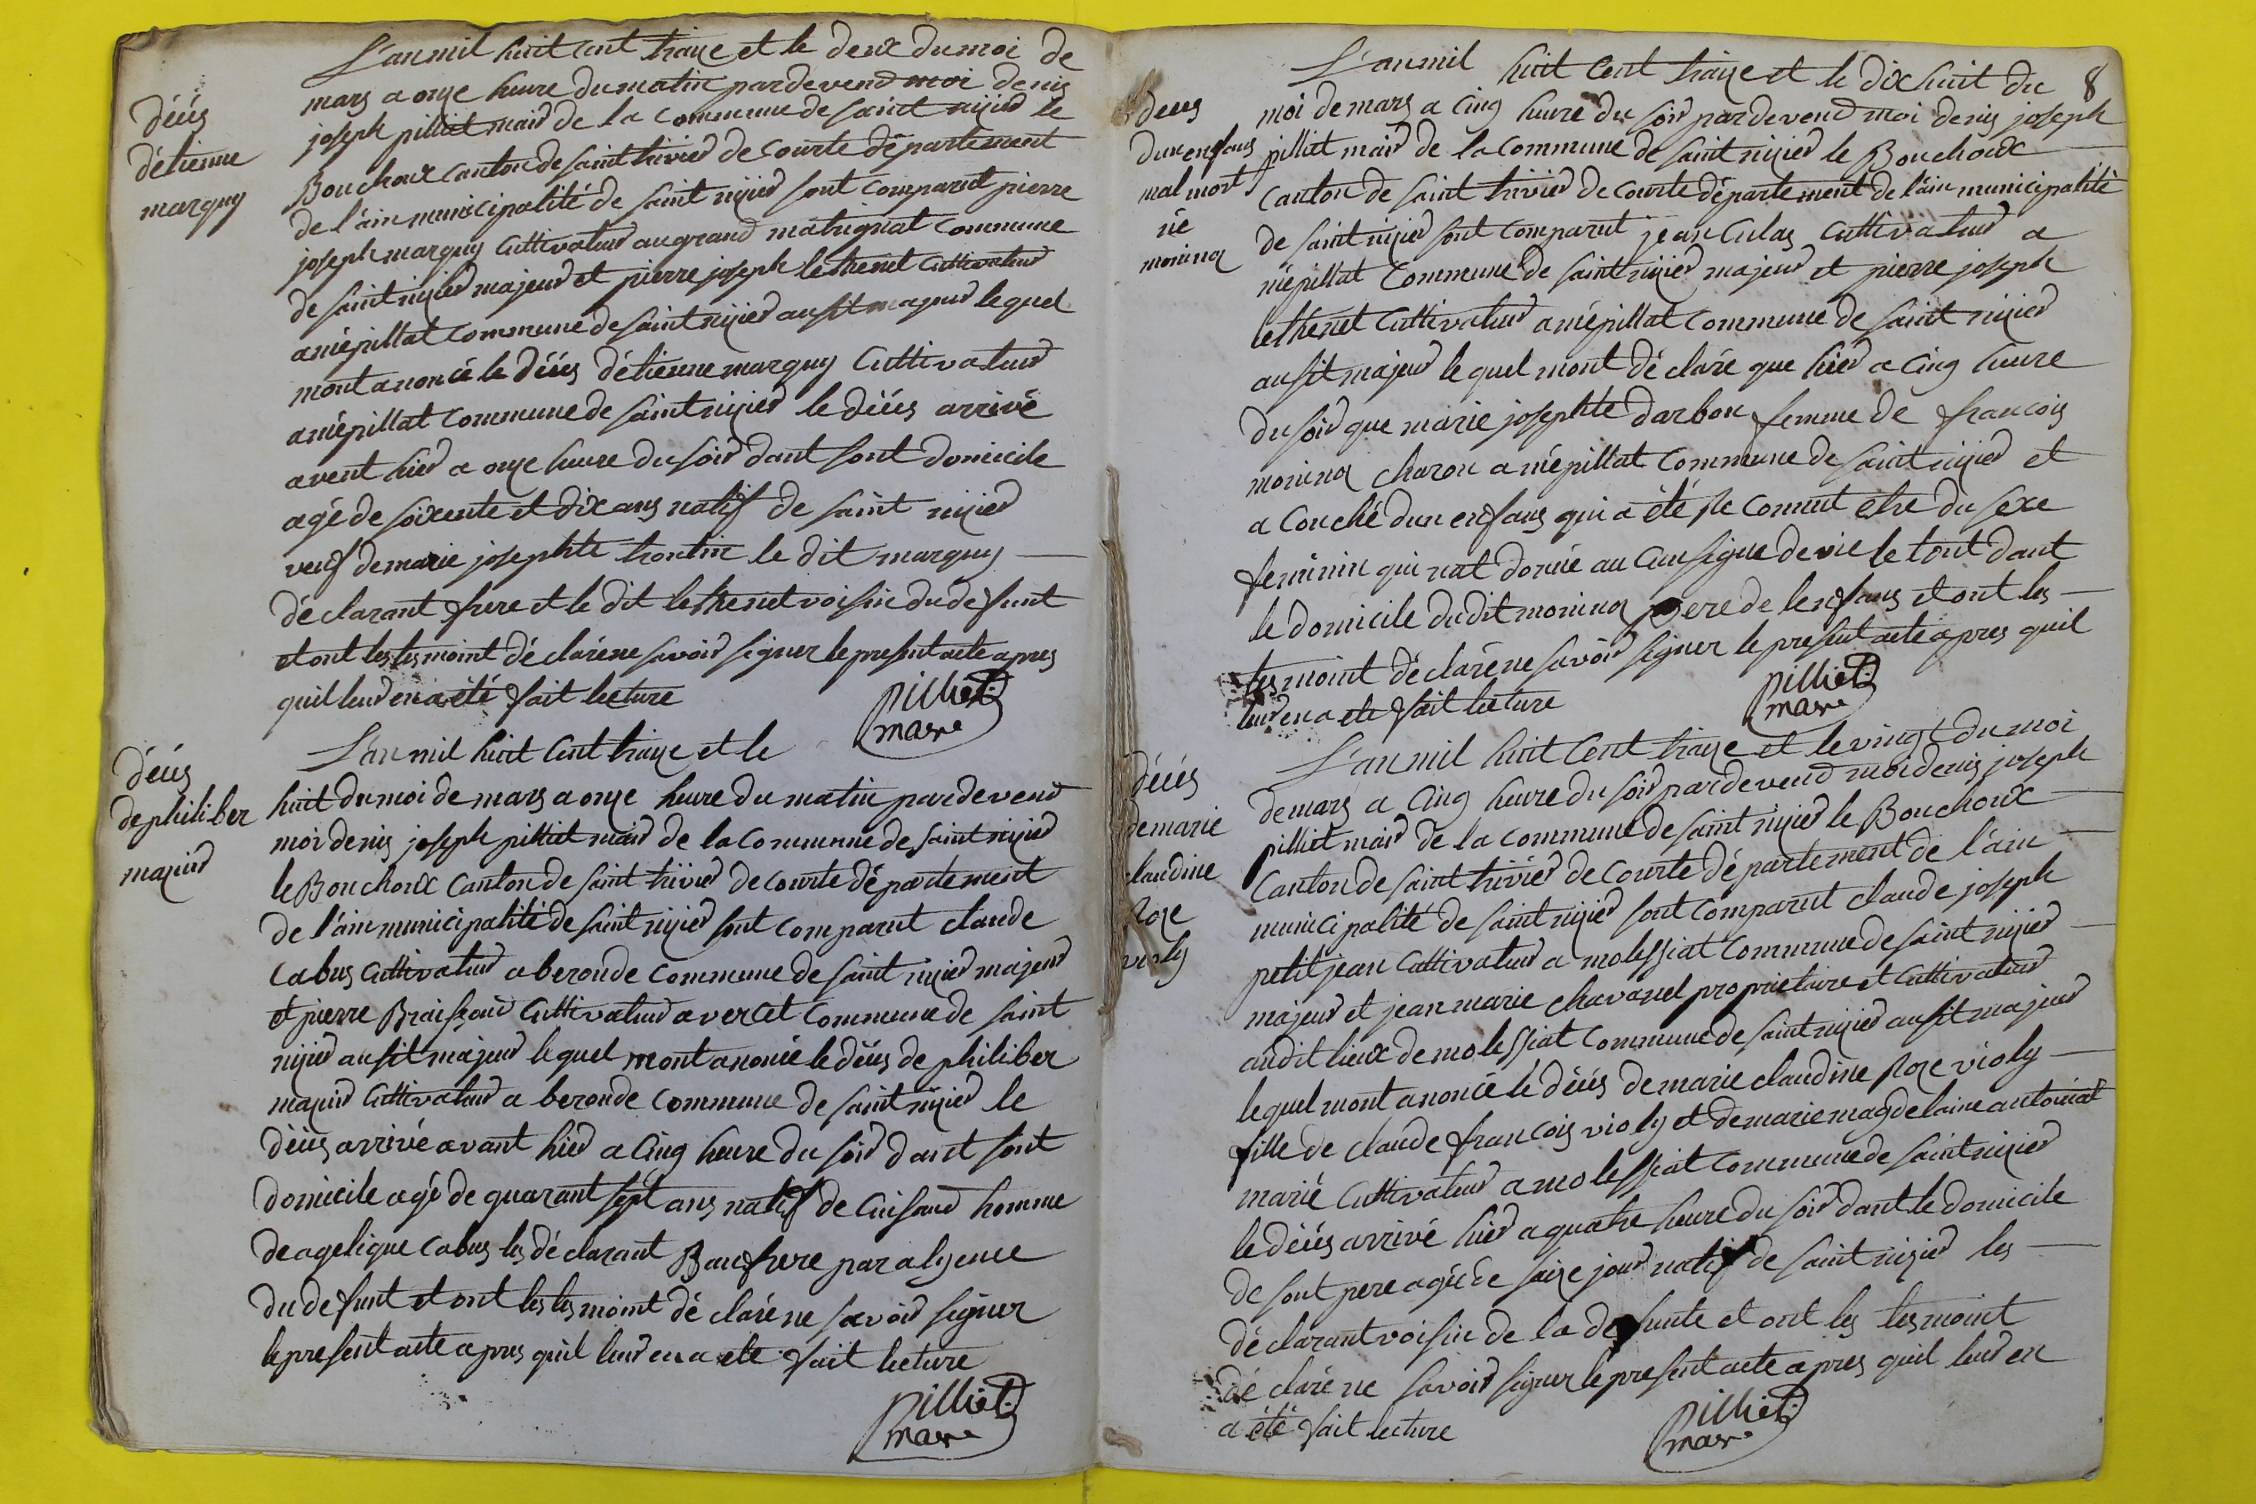 L'an mil huit cent traize et le deux du moi de
mars a onze heure du matin pardevend moi denis
joseph pilliet maid de la commune de saint nizied le
Bouchoux canton de saint trivied de courte département
de l'âin municipalité de saint nizied sont comparut pierre
joseph marguy Cultivateud au grand matrignat commune
de saint nizied majeud et pierre joseph lethenet Cultivateud
a mépillat commune de saint nizied ausit majeud lequel
mont anoncé le déces détienne marguy Cultivateud
a mépillat commune de saint nizied le déces arrivé
avent hied a onze heure du soid dant sont domicile
agé de soixente et dix ans natif de saint nizied
veuf de marie josephte trontin le dit marguy
déclarant frere et le dit lethenet voisin du defunt
et ont les tesmoint déclaré ne savoid signer le present acte apres
quil leud en a été fait lecture
pilliet
maire
déces
détienne
marguy
L'an mil huit Cent traize et le
huit du moi de mars a onze heure du matin pardevend
moi denis joseph pilliet maid de la commune de saint nizied
le Bouchoux Canton de saint trivied de courte département
de l'âin municipalité de saint nizied sont comparut claude
Cabus Cultivateud a beronde commune de saint nizied majeud
et pierre Cultivateud a vercet commune de saint
nizied ausit majeud lequel mont anoncé le déces de philiber
mazuid Cultivateud a beronde commune de saint nizied le
déces arrivé avant hied a Cinq heure du soid dant sont
domicile agé de quarant sept ans natif de Cuisaud homme
de agelique Cabus les déclarant Baufrere par alyence
du defunt et ont les tesmoint déclaré ne savoid signer
le present acte apres quil leud en a été fait lecture
pilliet
maire
déces
de philiber
mazuid
8
L'an mil huit Cent traize et le dix huit du
moi de mars a Cinq heure du soid pardevend moi denis joseph
pilliet maid de la commune de saint nizied le Bouchoux
Canton de saint trivied de courte département de l'âin municipalité
de saint nizied sont comparut jean Culas Cultivateud a
mépillat Commune de saint nizied majeud et pierre joseph
lethenet Cultivateud a mépillat commune de saint nizied
ausit majeud lequel mont déclaré que hied a Cinq heure
du soid que marie josephte darbon femme de francois
moninq charon a mépillat commune de saint nizied et
a Couché dun enfans qui a été reconnut etre du sexe
feminin qui nat donné au Cun signe de vie le tout dant
le domicile dudit moninq pere de lenfans et ont les
tesmoint déclaré ne savoid signer le present acte apres quil
leud en a été fait lecture
pilliet
maire
deces
dun enfans
mal mort
né
moninq
L'an mil huit Cent traize et le vingt du moi
de mars a Cinq heure du soid pardevend moi denis joseph
pilliet maid de la commune de saint nizied le Bouchoux
Canton de saint trivied de courte département de l'âin
municipalité de saint nizied sont comparut claude joseph
petitjean Cultivateud a molessiat Commune de saint nizied
majeud et jean marie chavanel proprietaire et Cultivateud
audit lieux de molessiat commune de saint nizied ausit majeud
lequel mont anoncé le déces de marie claudine roze violy
fille de claude francois violy et de marie magdelaine antoinat
marié Cultivateud a molessiat commune de saint nizied
le déces arrivé hied a quatre heure du soid dant le domicile
de sont pere agée de saize jour natif de saint nizied les
déclarant voisin de la defunte et ont les tesmoint
déclaré ne savoid signer le present acte apres quil leud en
a été fait lecture
pilliet
maire
déces
de marie
claudine
roze
violy